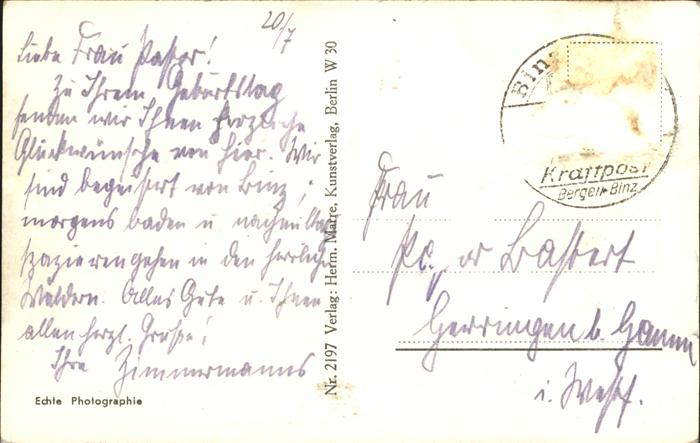 20/7
Liebe Frau Pastor!
Zu Ihrem Geburtstag
senden wir Ihnen herzliche
Glückwünsche von hier. Wir
sind begeistert von Binz,
morgens baden u nachmittags
spazierengehen in den herrlichen
Wäldern. Alles Gute u. Ihnen
allen herzl. Grüße!
Ihre Zimmermanns
Echte Photographie
Nr. 2197 Verlag: Herm. Marre, Kunstverlag, Berlin W 30
Binz
Kraftpost
Bergen-Binz
Frau
Bastert
Gerringen b. Hamm
i. Westf.